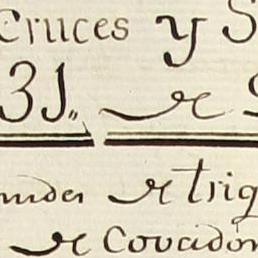 Cruces y S
31,, de S
nides de trig
de Covadon